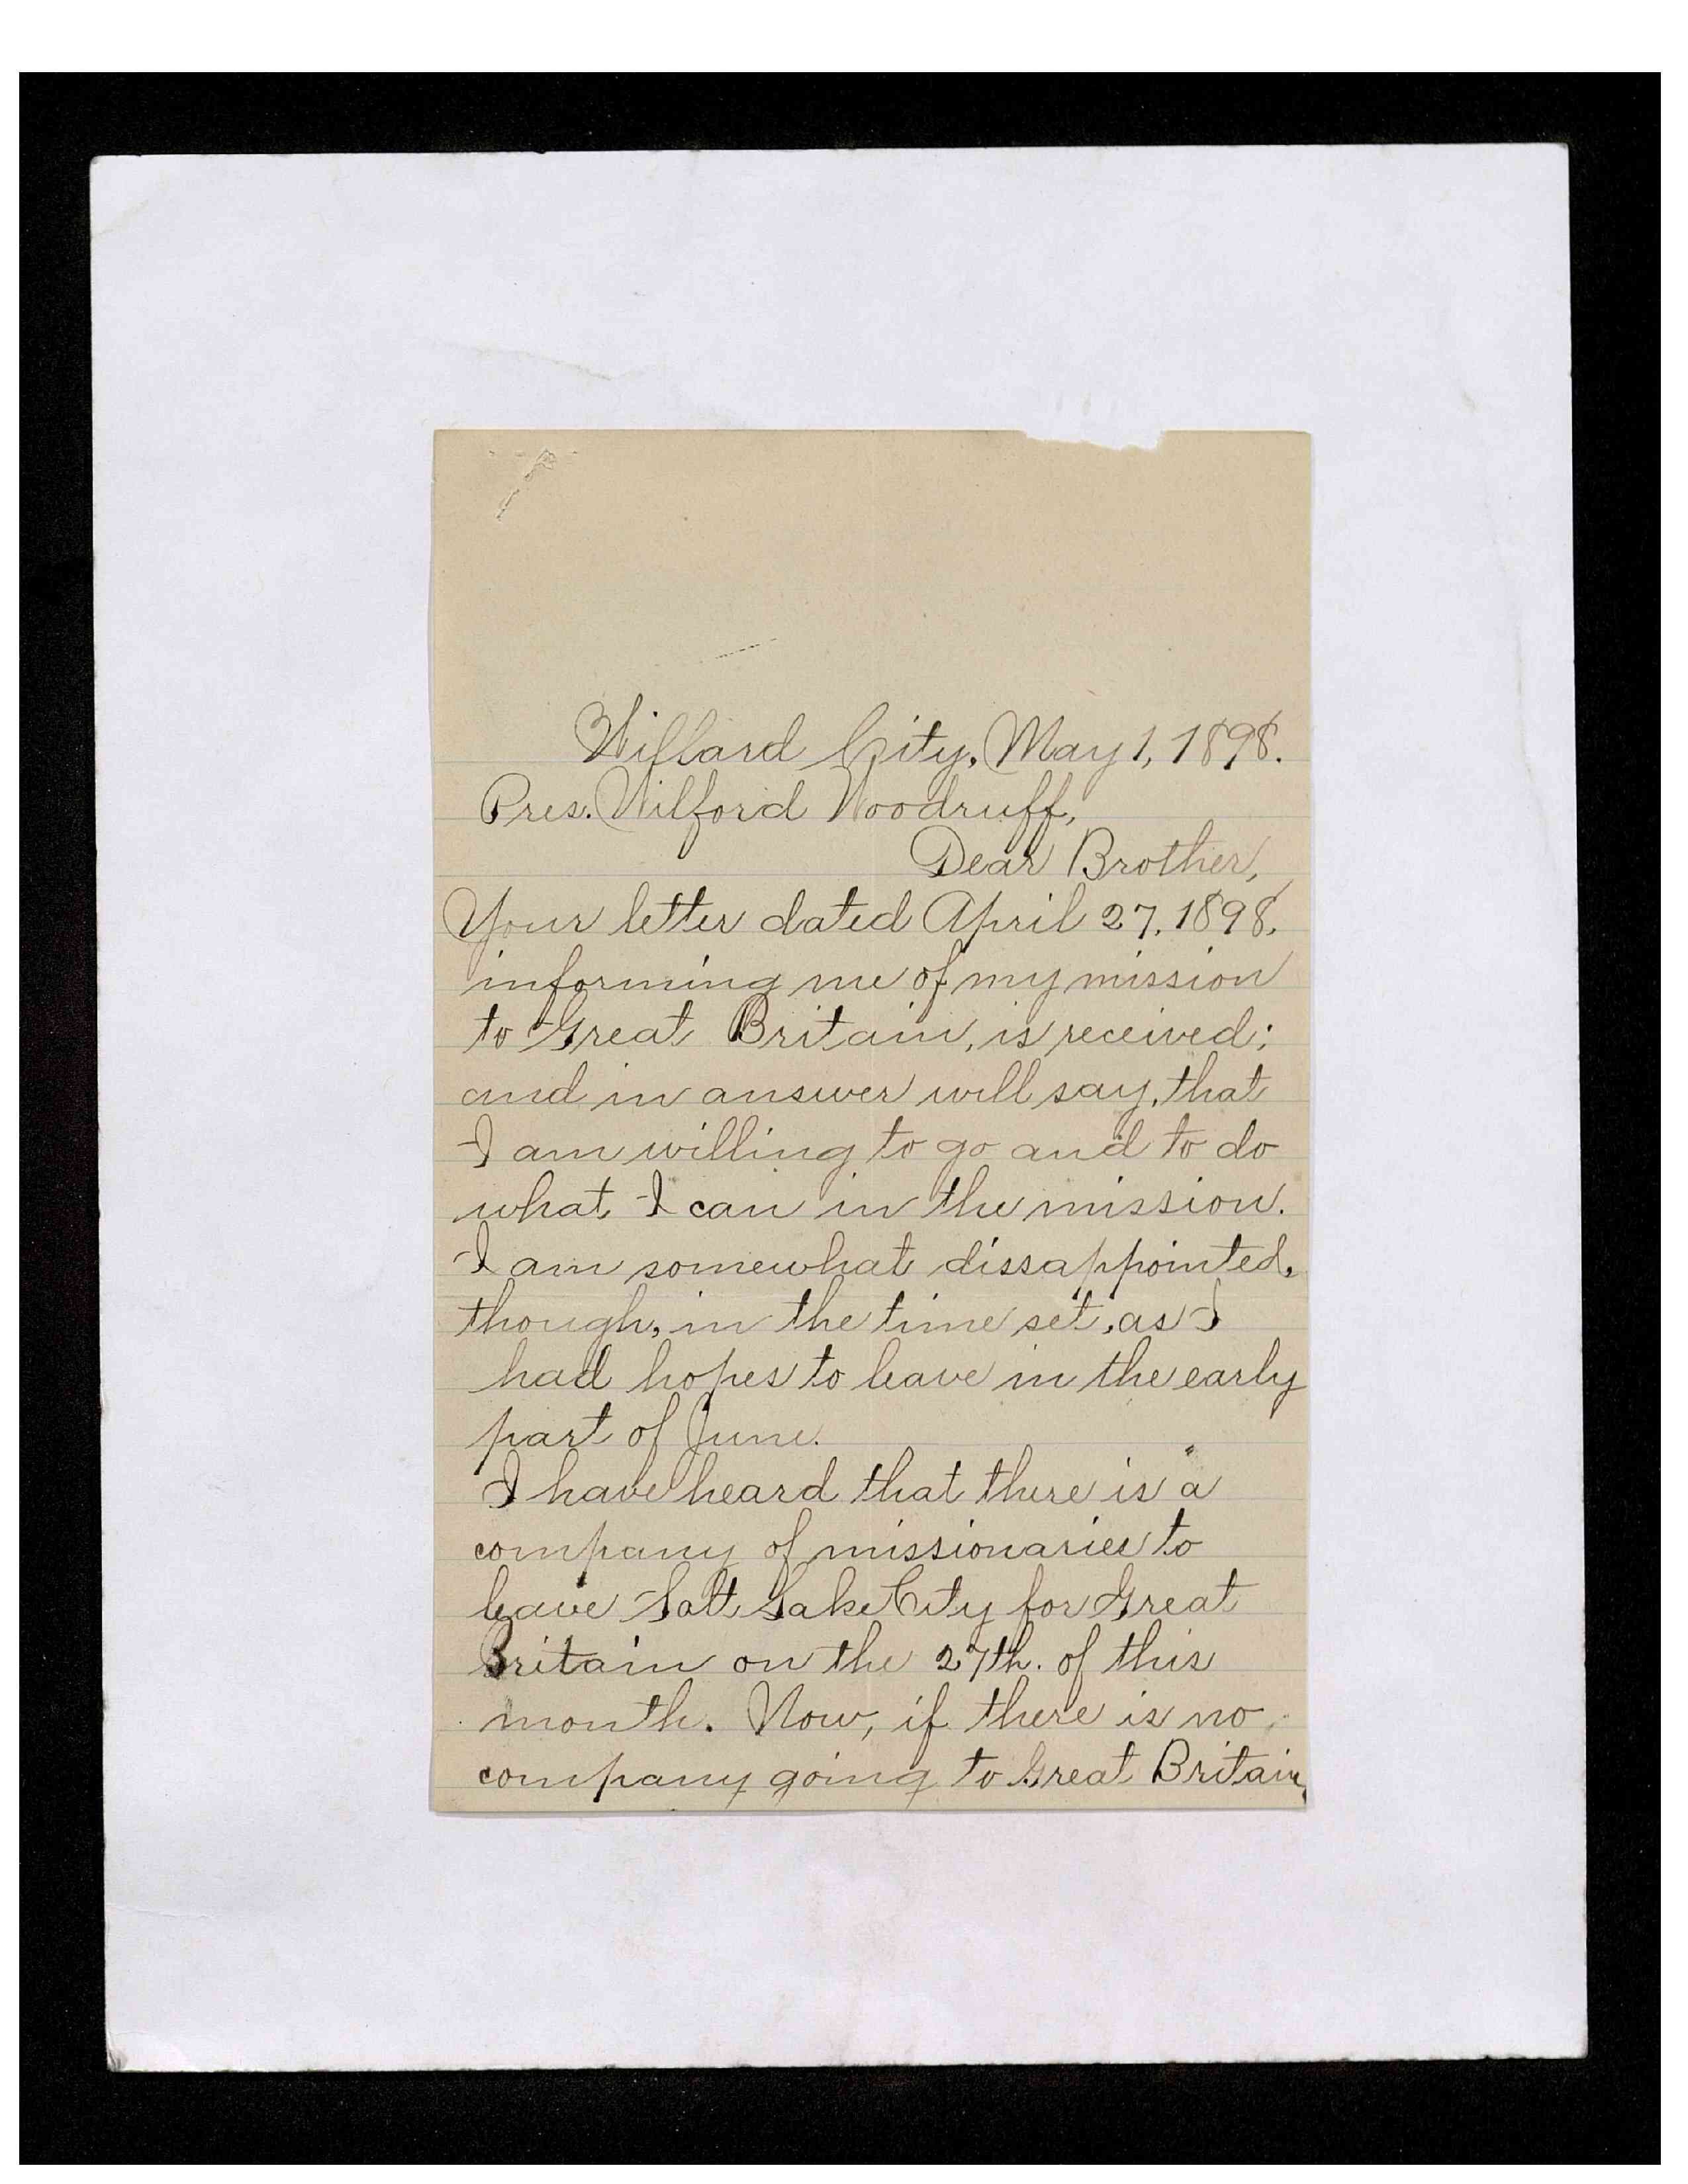 Willard City, May 1, 1898.
Pres. Wilford Woodruff,
Dear Brother,
Your letter dated April 27, 1898,
informing me of my mission
to Great Britain, is received;
and in answer will say, that
I am willing to go and to do
what I can in the mission.
I am somewhat dissappointed,
though, in the time set, as I
had hopes to leave in the early
part of June.
I have heard that there is a
company of missionaries to
leave Salt Lake City for Great
Britain on the 27th. of this
month. Now, if there is no
company going to Great Britain,